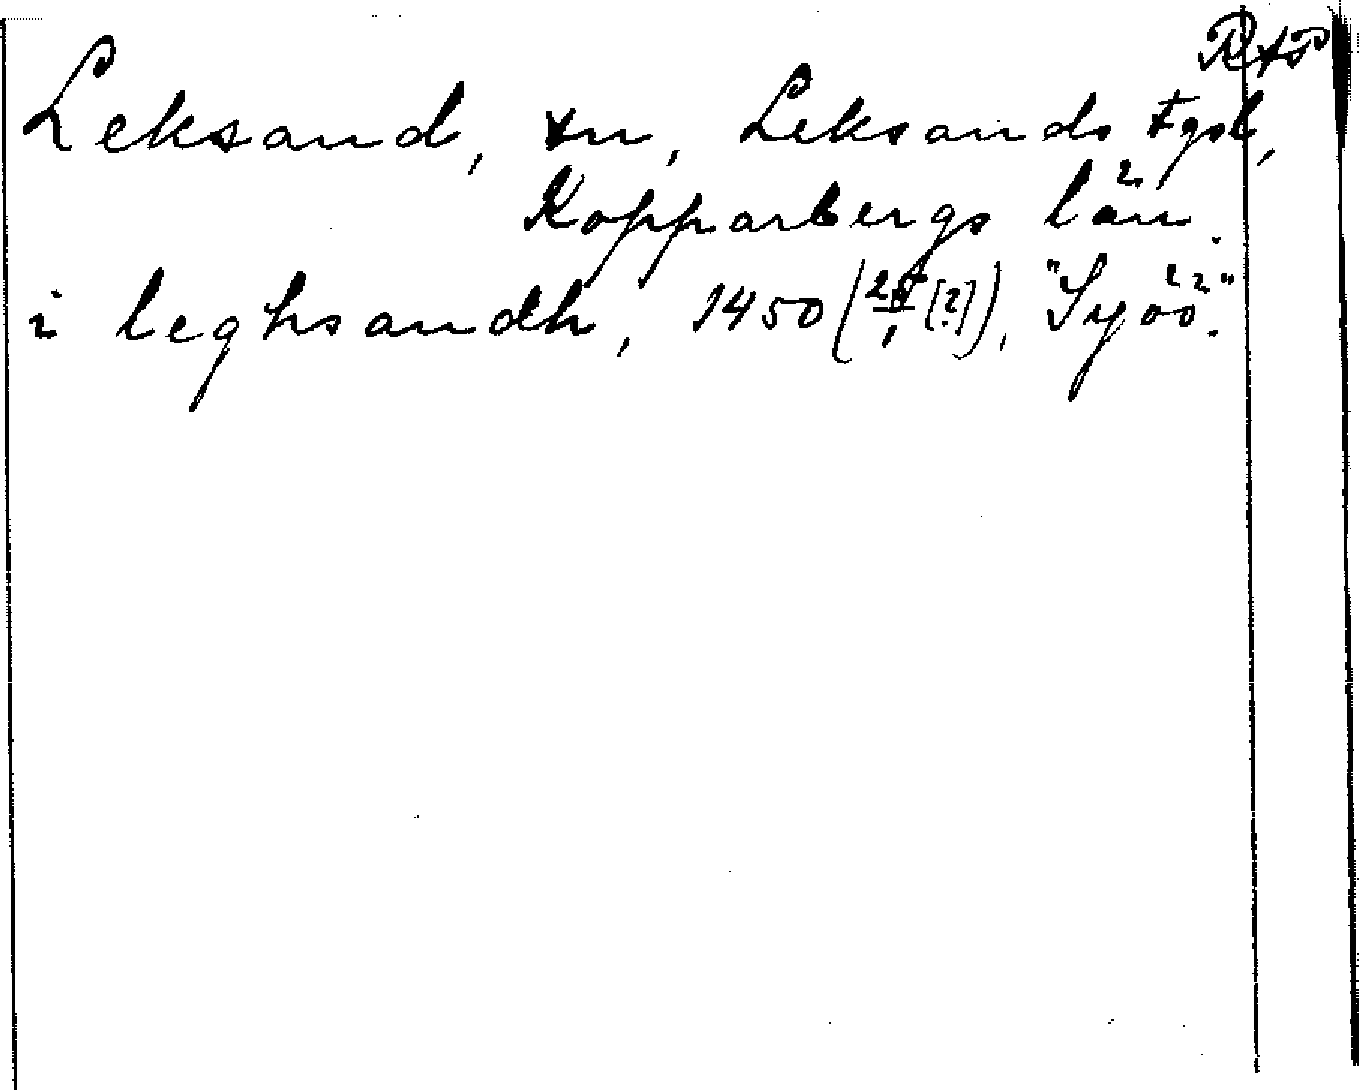 RAP
Leksand, sn, Leksands tgsl,
Kopparbergs län.
i leghsandh, 1450 ( [?]), "Syöö."